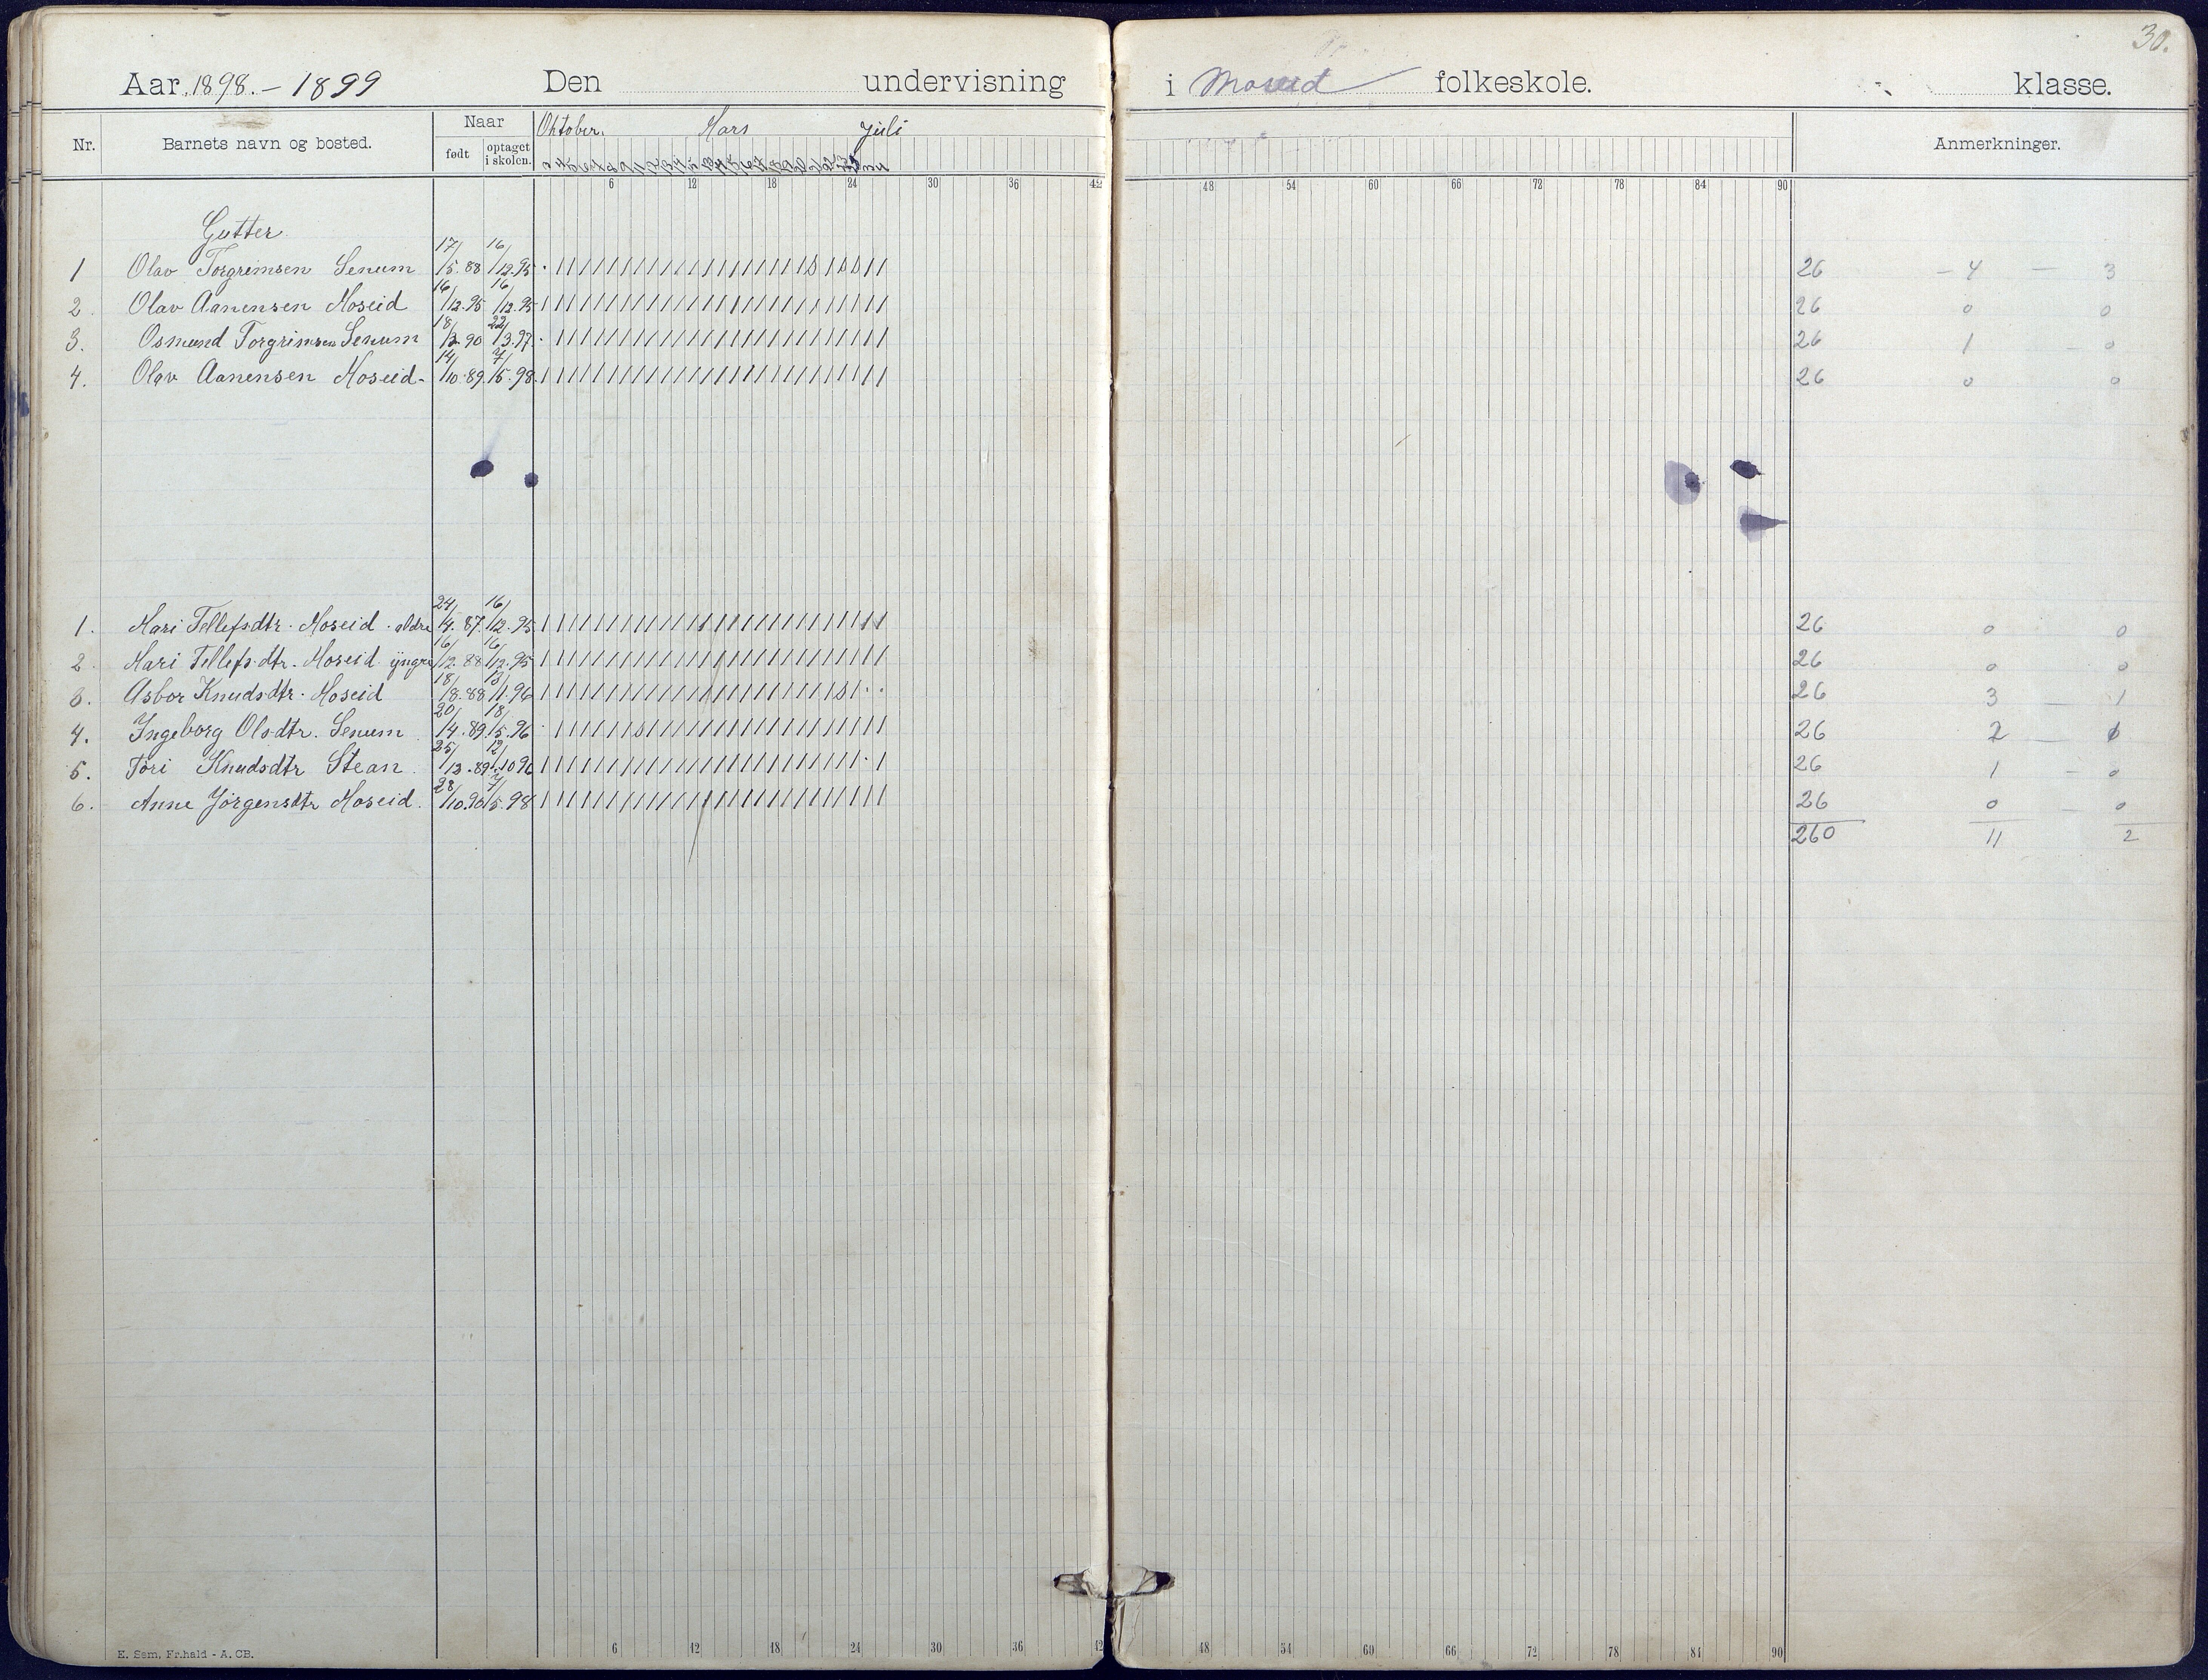 30.
Aar 1898. – 1899 Den undervisning i Moseid folkeskole. klasse.
Nr. Barnets navn og bosted. Naar Oktober. Mars Juli Anmerkninger.
født optaget i skolen.
6 12 18 24 30 36 42 48 54 60 66 72 78 84 90
Gutter
1 Olav Torgrimsen Senum 17/5.88 16/12.95 26 – 4 – 3
2. Olav Aanensen Moseid 16/12.95 16/12.95 26 0 0
3. Osmund Torgrimsen Senum 18/3.90 22/3.97. 26 1 – 0
4. Olav Aanensen Moseid. 14/10.89. 7/5.98. 26 0 0
1. Mari Tellefsdtr. Moseid. ældre 24/4.87. 16/12.95 26 0 0
2. Mari Tellefsdtr. Moseid yngre 16/12.88 16/12.95 26 0 0
3. Asbor Knudsdtr. Moseid 18/8.88 13/11.96 26 3 – 1
4. Ingeborg Olsdtr. Senum 20/4.89. 18/5.96 26 2 –
5. Tori Knudsdtr Stean. 25/12.89 12/10 96 26 1 – 0
6. Anne Jörgensdtr Moseid. 28/10.90 7/5.98 26 0 – 0
260 11 2
E. Sem, Fr.hald - A. CB.
6 12 18 24 30 36 42 48 54 60 66 72 78 84 90